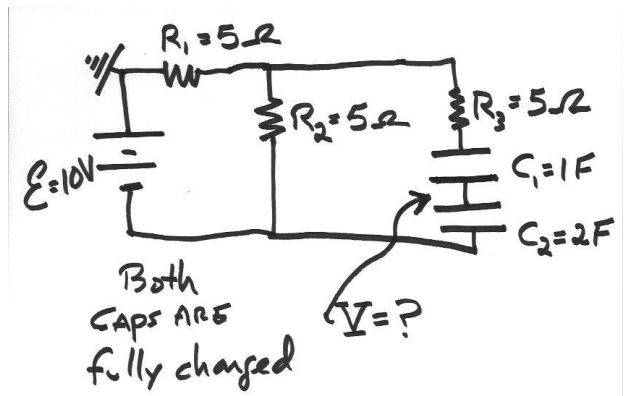 R₁=5Ω
R₂=5Ω
R₃=5Ω
C₁=1F
ℰ=10V
C₂=2F
Both
CAPS ARE
fully charged
V=?